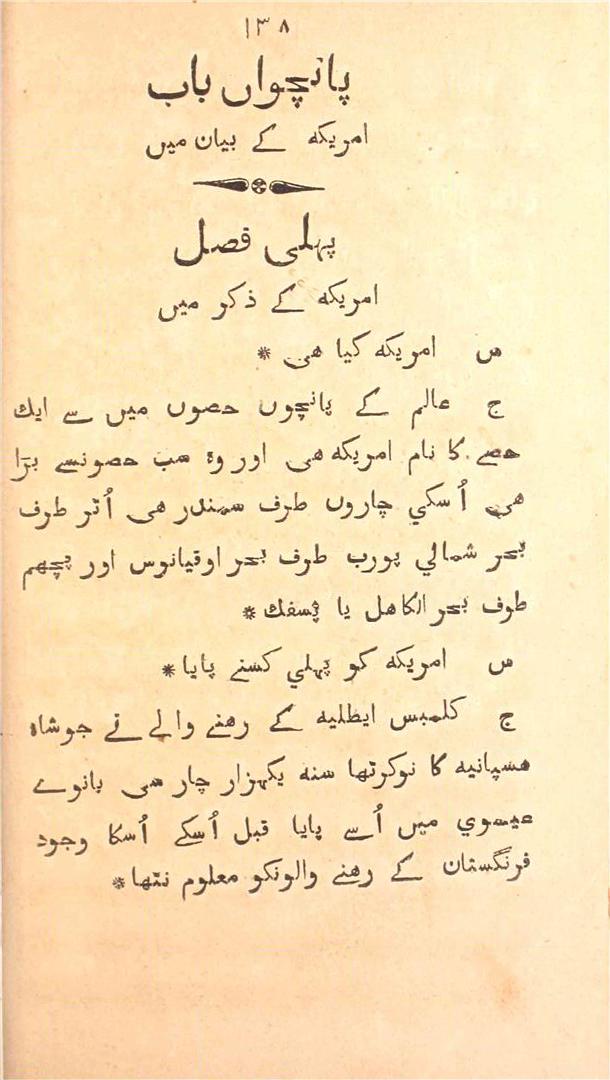 ۱۳۸
پانچواں باب
امریکہ کے بیان میں
پہلی فصل
امریکہ کے ذکر میں
س امریکہ کیا هی *
ج عالم کے پانچوں حصوں میں سے ایك
حصے کا نام امریکہ هی اور وہ سب حصونسے بڑا
هی اُسکي چاروں طرف سمندر هی اُتر طرف
بحر شمالي پورب طرف بحر اوقیانوس اور پچھم
طرف بحر الکاهل یا پسفك *
س امریکہ کو پہلي کسنے پایا *
ج کلمبس ایطلیہ کے رهنے والے نے جو شاہ
هسپانیہ کا نوکرتھا سنہ یکہزار چار سی بانوے
عیسوي میں اُسے پایا قبل اُسکے اُسکا وجود
فرنگستان کے رهنے والونکو معلوم نتھا *